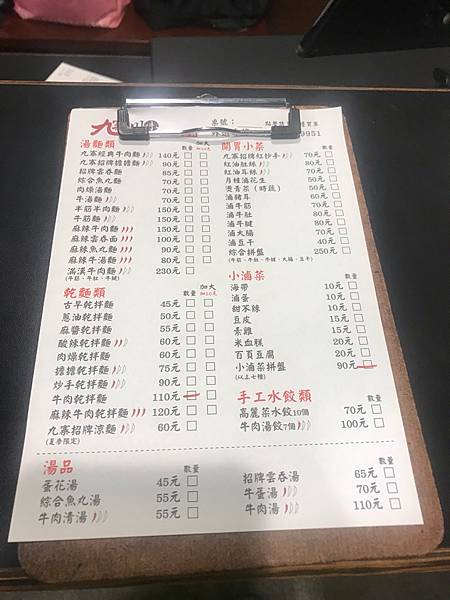 九
桌號：
9951
湯麵類 數量 加大
九寨經典牛肉麵 140元
九寨招牌擔擔麵 90元
招牌雲吞麵 85元
綜合魚丸麵 70元
肉燥湯麵 70元
牛湯麵 70元
半筋半肉麵 150元
牛筋麵 150元
麻辣牛肉麵 150元
麻辣雲吞面 100元
麻辣魚丸麵 90元
麻辣牛湯麵 80元
滿漢牛肉麵 230元
(牛筋、牛肚、牛腱)
乾麵類 數量 加大 加10元
古早乾拌麵 45元
蔥油乾拌麵 50元
麻醬乾拌麵 55元
酸辣乾拌麵 60元
肉燥乾拌麵 60元
擔擔乾拌麵 75元
炒手乾拌麵 90元
牛肉乾拌麵 110元
麻辣牛肉乾拌麵 120元
九寨招牌涼麵 60元
(夏季限定)
開胃小菜 數量
九寨招牌紅抄手 70元
紅油肚絲 80元
紅油耳絲 70元
月桂滷花生 50元
燙青菜（時蔬） 50元
滷豬耳 60元
滷牛筋 70元
滷牛肚 80元
滷牛腱 80元
滷大腸 70元
滷豆干 40元
綜合拼盤 250元
(牛筋、牛肚、牛腱、大腸、豆干)
小滷菜 數量
海帶 10元
滷蛋 10元
甜不辣 10元
豆皮 15元
素雞 15元
米血糕 20元
百頁豆腐 20元
小滷菜拼盤 90元
(以上七種)
手工水餃類
高麗菜水餃10個 70元
牛肉湯餃7個 100元
湯品 數量
蛋花湯 45元
綜合魚丸湯 55元
牛肉清湯 55元
數量
招牌雲吞湯 65元
牛蛋湯 70元
牛肉湯 110元